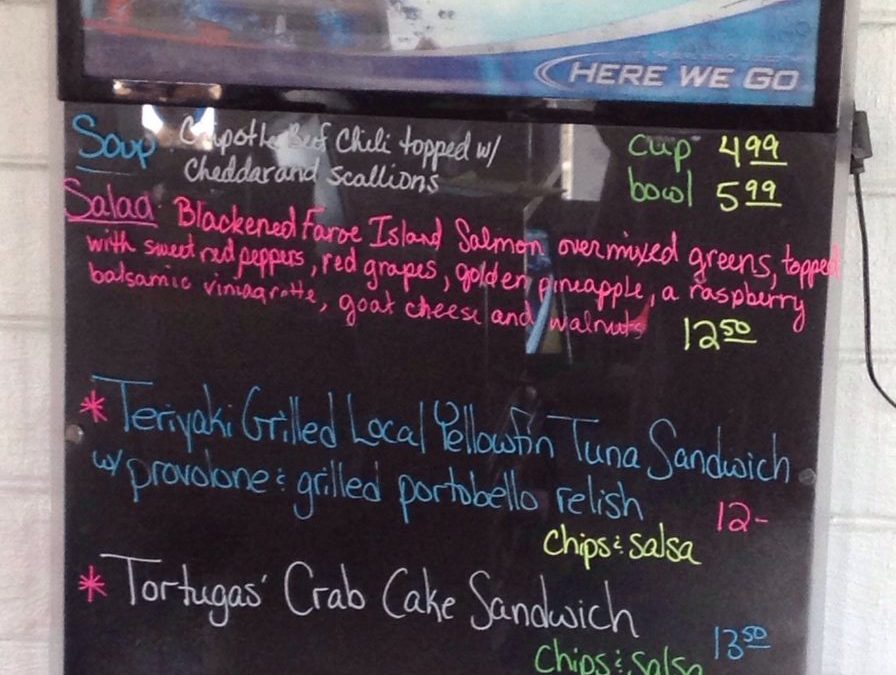 HERE WE GO
Soup Chipotle Beef Chili topped w/ cup 4.99
cheddar and scallions bowl 5.99
Salad Blackened Faroe Island Salmon over mixed greens, topped
with sweet red peppers, red grapes, golden pineapple, a raspberry
balsamic viniagrette, goat cheese and walnuts 12.50
* Teriyaki Grilled Local Yellowfin Tuna Sandwich
w/ provolone & grilled portobello relish 12-
chips & salsa
* Tortugas' Crab Cake Sandwich
chips & salsa 13.50